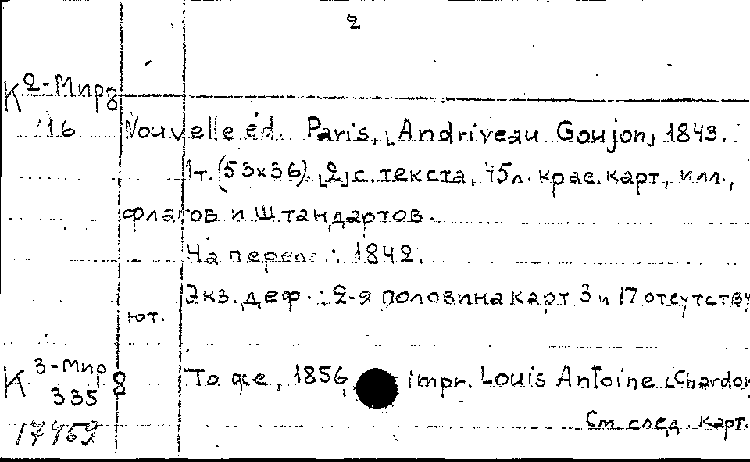 2
К 2-Мир 8
16 Nouvelle éd. Paris, [Andriveau Goujon], 1843.
1т. (53х36) [2] с. текста, 45л. крас. карт, илл.,
флагов и штандартов.
На переп. : 1842.
Экз. деф. : 2-я половина карт 3 и 17 отсутству
ют.
К 3-Мир 8 То же, 1856, impr. Louis Antoine [Chardon
335
17469 См. след. карт.